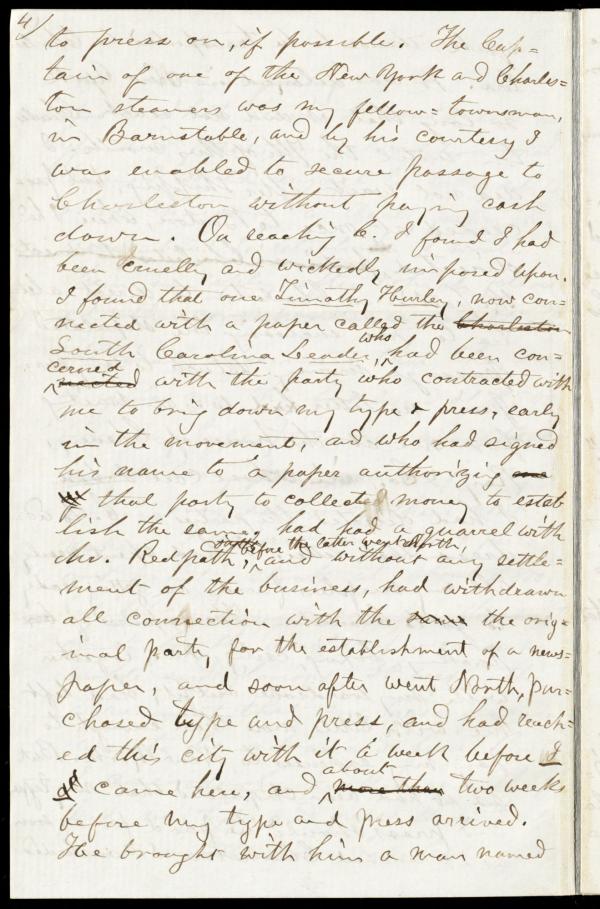 4/
to press on, if possible. The Cap=
tain of one of the New York and Charles=
ton steamers was my fellow=townsman,
in Barnstable, and by his courtesy I
was enabled to secure passage to
Charleston without paying cash
down. On reaching C. I found I had
been cruelly and wickedly imposed upon.
I found that one Timothy Hurley, now con=
nected with a paper called the Charleston
South Carolina Leader, who had been con=
cerned nected with the party who contracted with
me to bring down my type & press, early
in the movement, and who had signed
his name to a paper authorizing
that party to collected money to estab
lish the same, had had a quarrel with
Mr. Redpath, before the latter went North, and without any settle=
ment of the business, had withdrawn
all connection with the same the orig=
inal party, for the establishment of a news=
paper, and soon after went North, pur=
chased type and press, and had reach=
ed this city with it a week before I
came here, and about more than two weeks
before my type and press arrived.
He brought with him a man named